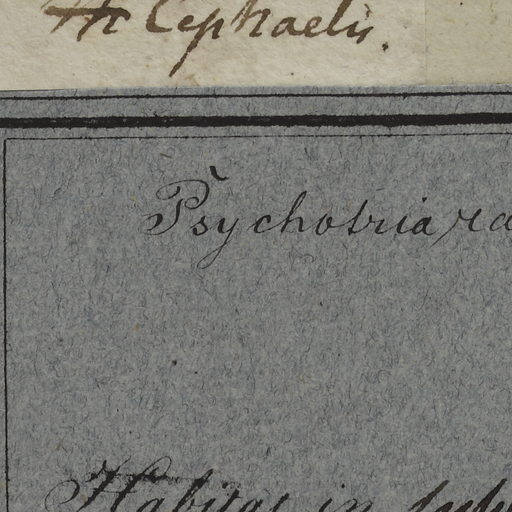 Cephaelis.
Psychotria ra
Habitat in